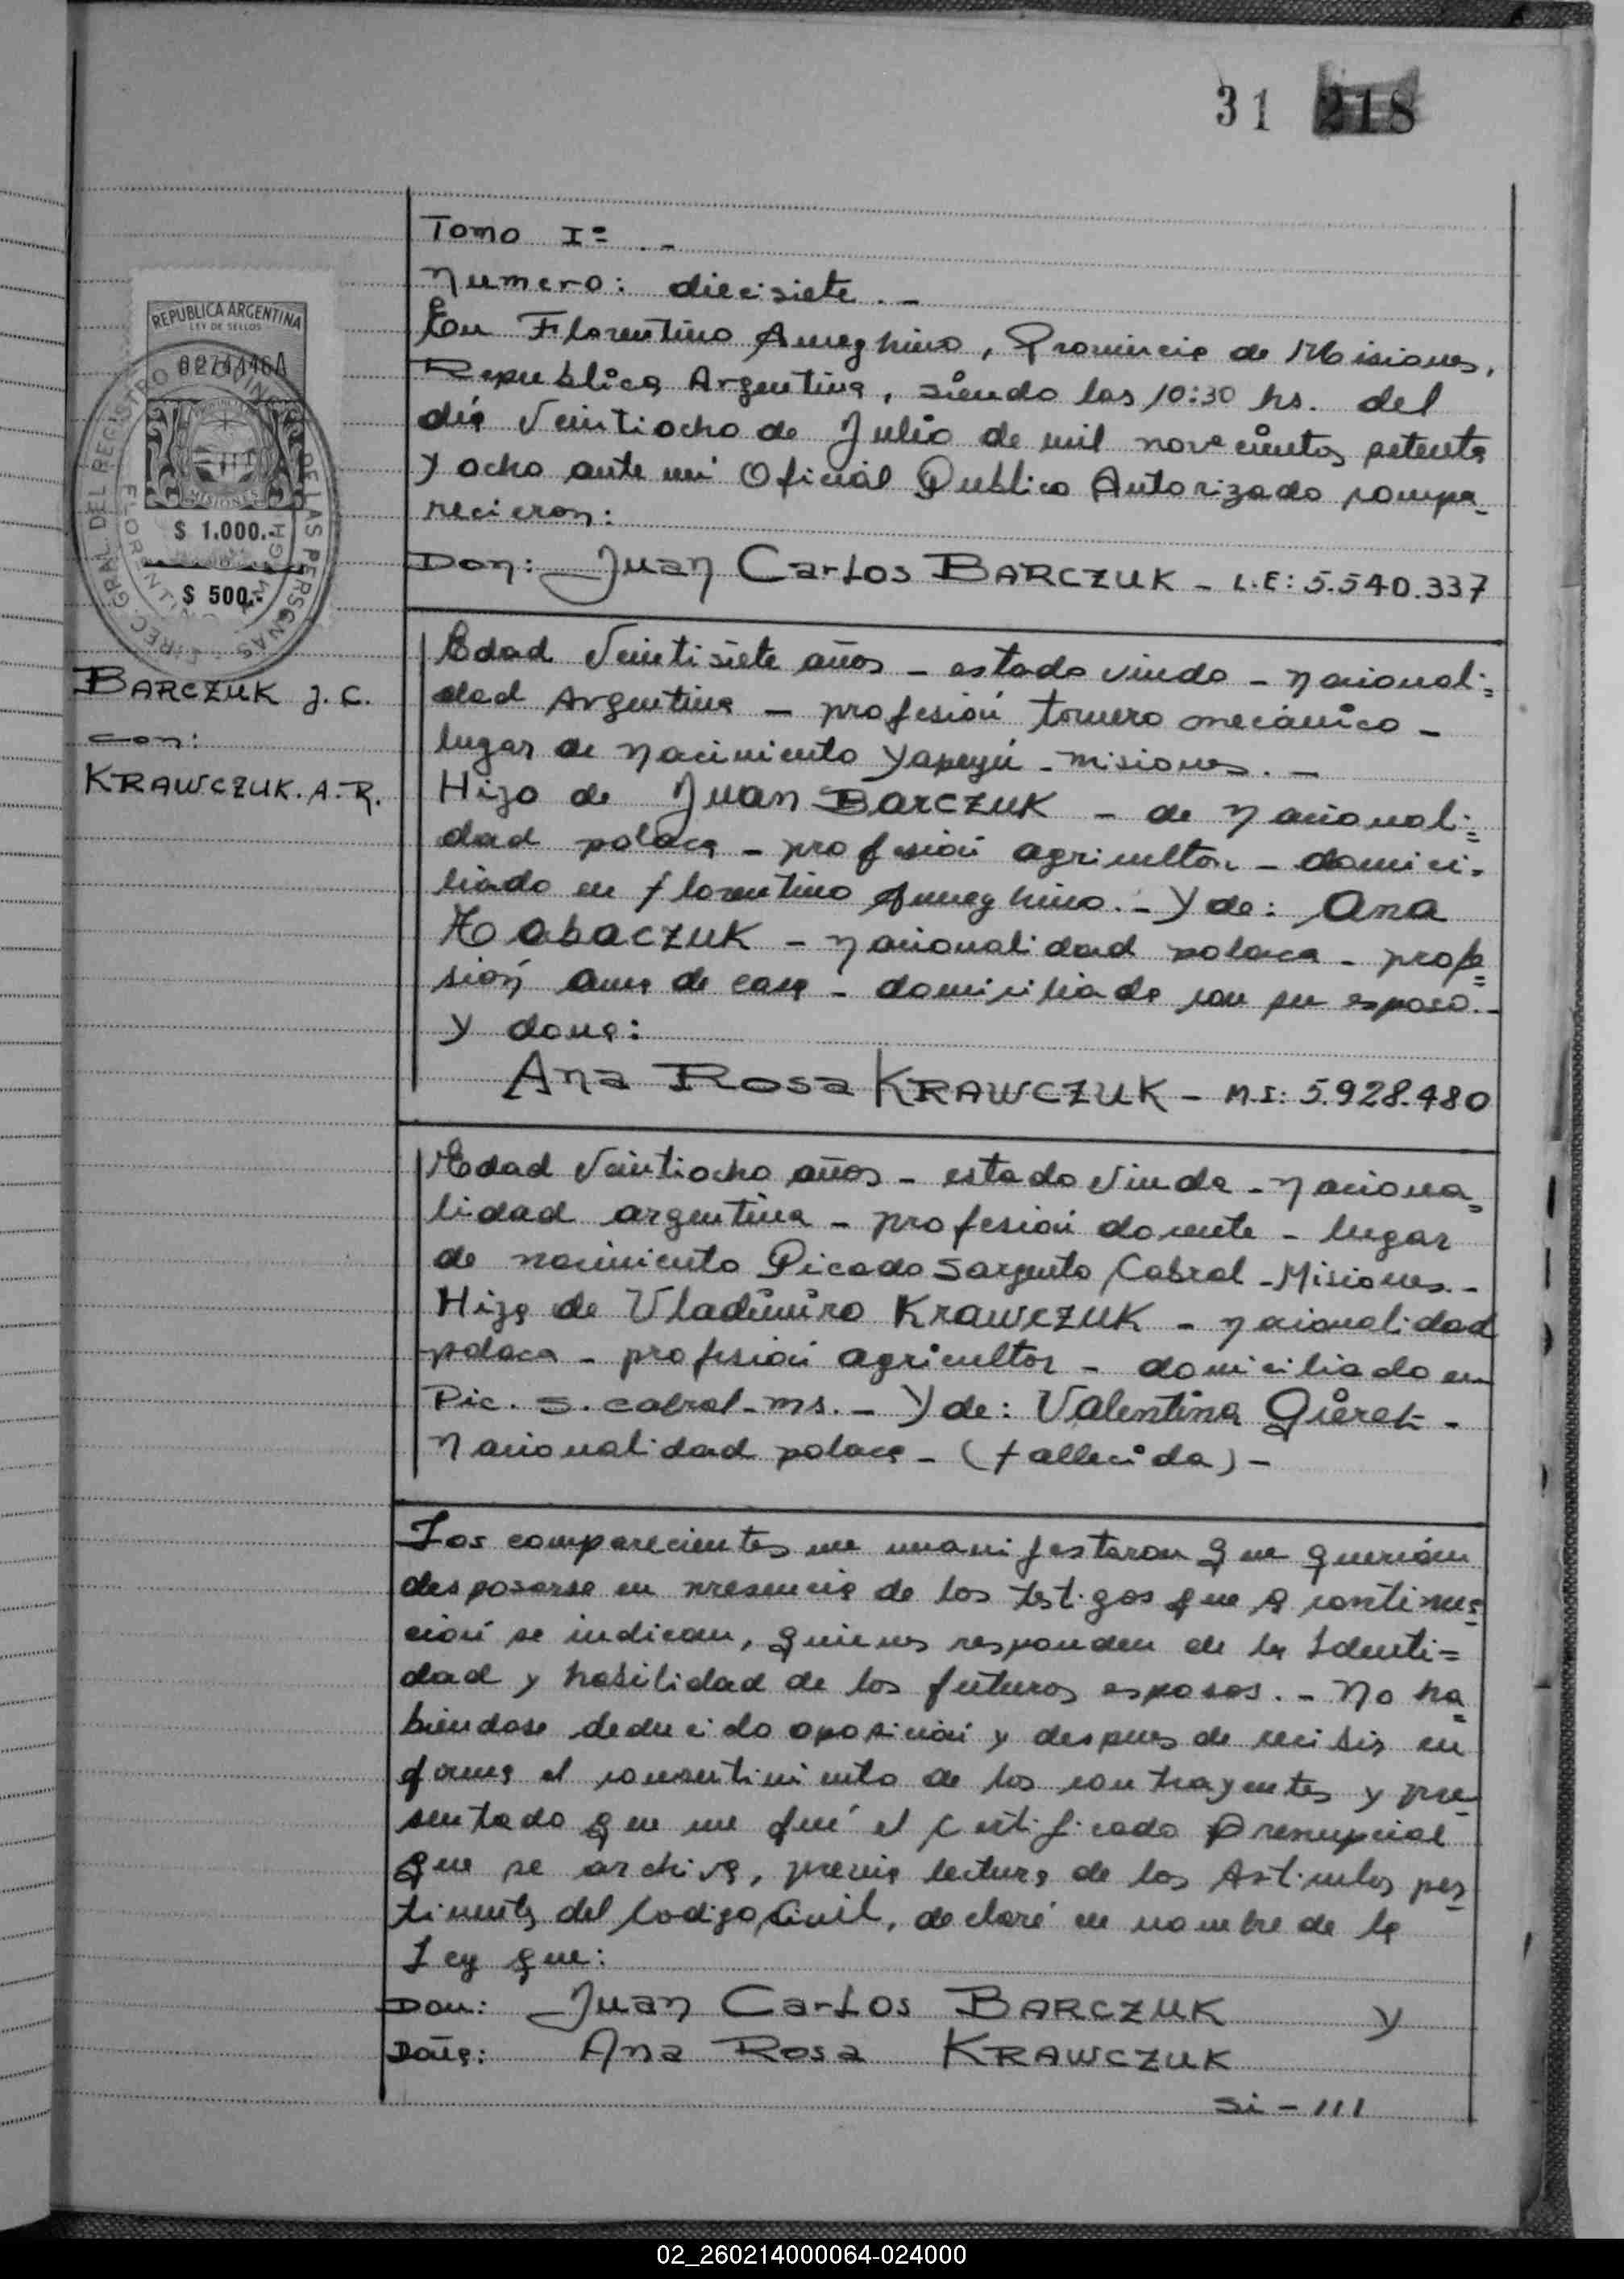 31 218
Tomo Iº . . -
Numero: diecisiete . -
En Florentino Ameghino, Provincia de Misiones,
Republica Argentina, siendo las 10:30 hs. del
día Veintiocho de Julio de mil novecientos setenta
y ocho ante mi Oficial Publico Autorizado compa-
recieron:
Don: Juan Carlos BARCZUK - L.E: 5.540.337
Edad Veintisiete años - estado viudo - nacionali=
dad Argentina - profesión tornero mecánico -
lugar de nacimiento Yapeyú - misiones. -
Hijo de Juan BARCZUK - de nacionali=
dad polaca - profesión agricultor - domici-
liado en florentino Ameghino. - Y de: Ana
HabaczuK - nacionalidad polaca - profe=
sión ama de casa - domiciliada con su esposo. -
y doña:
Ana Rosa KRAWCZUK - M.I: 5.928.480
Edad Veintiocho años - estado Viuda - naciona=
lidad argentina - profesión docente - lugar
de nacimiento Picada Sargento Cabral - Misiones. -
Hija de Vladimiro KrawczuK - nacionalidad
polaca - profesión agricultor - domiciliado en
Pic. S. cabral - ms. - Y de: Valentina -
nacionalidad polaca - (fallecida) -
Los comparecientes me manifestaron que querían
desposarse en presencia de los testigos que a continua=
ción se indican, quienes responden de la Identi=
dad y habilidad de los futuros esposos. - No ha=
biendose deducido oposición y despues de recibir en
forma el consentimiento de los contrayentes y pre-
sentado que me fué el Certificado Prenupcial
que se archiva, previa lectura de los Articulos per=
tinentes del Codigo Civil, declaré en nombre de la
Ley que:
Don: Juan Carlos BARCZUK y
Doña: Ana Rosa KRAWCZUK
si - ///
REPUBLICA ARGENTINA
LEY DE SELLOS
MISIONES
$ 1.000.-
$ 500.-
BARCZUK J. C.
con:
KRAWCZUK. A. R.
02_260214000064-024000